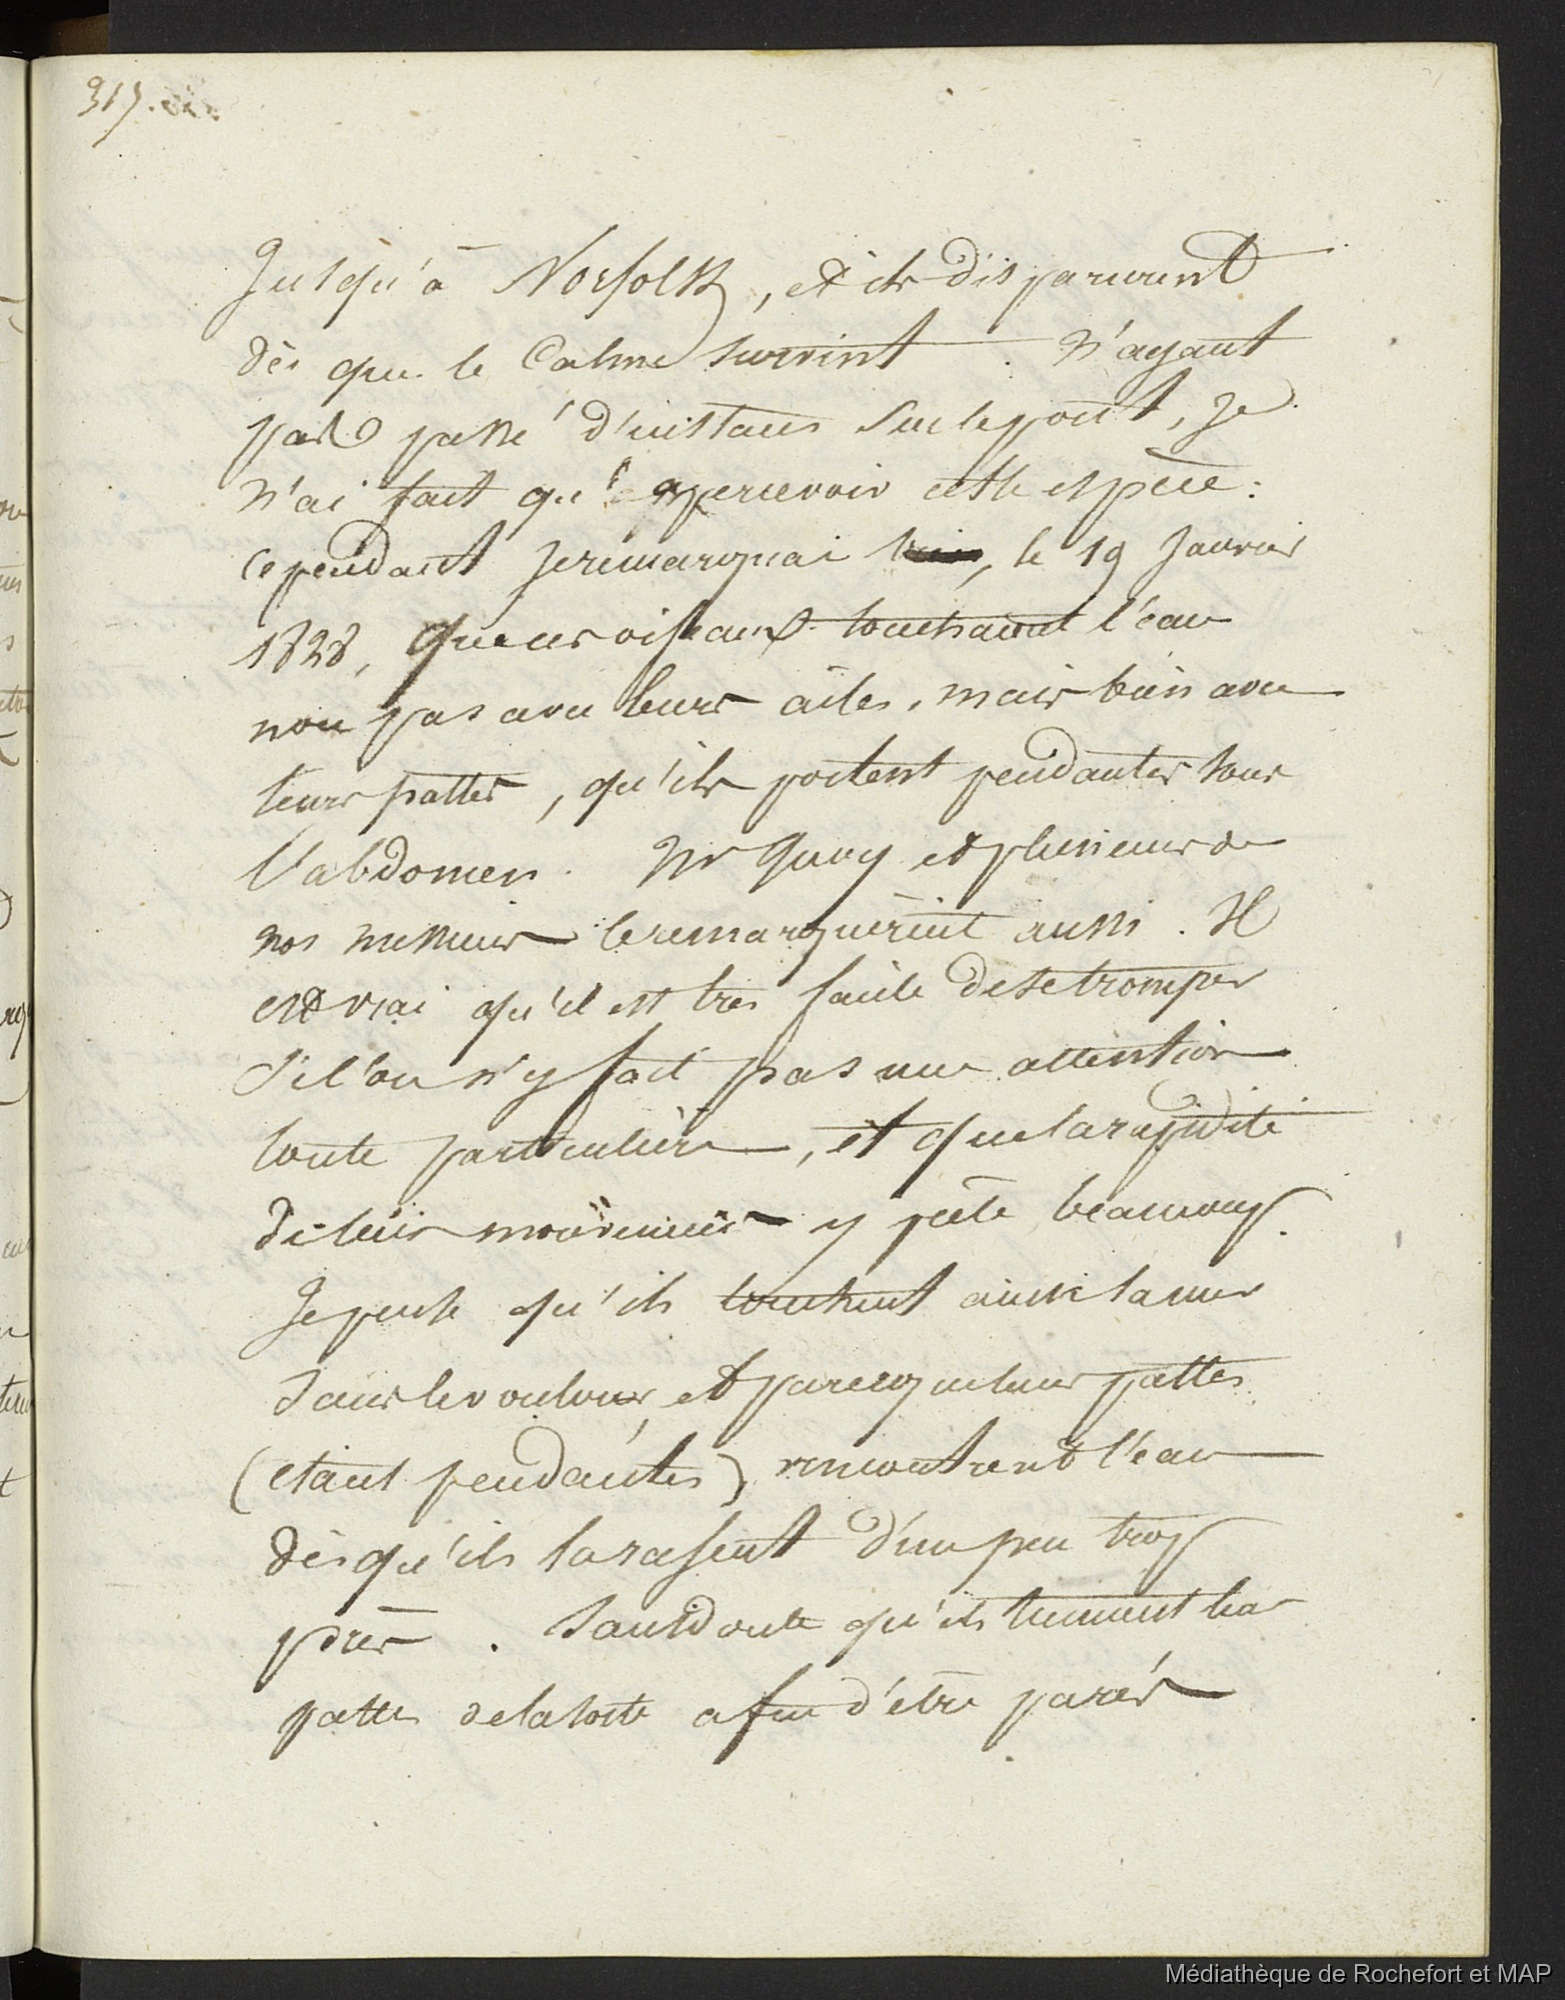 317.
Jusqu'à Norfolk, et ils disparurent
dès que le Calme survint. N'ayant
pas passé d'instans sur le pont, Je
n'ai fait qu'apercevoir cette espèce:
Cependant Je remarquai, le 19 Janvier
1828, que ces oiseaux touchaient l'eau
non pas avec leurs ailes, mais bien avec
leurs pattes, qu'ils portent pendantes sous
l'abdomen. Mr Quoy et plusieurs de
nos messieurs le remarquèrent aussi. Il
est vrai qu'il est très facile de se tromper
si l'on n'y fait pas une attention
toute particulière, et que la rapidité
de leurs mouvemens y prête beaucoup.
Je pense qu'ils touchent ainsi la mer
sans le vouloir, et parceque leurs pattes
(etant pendantes) rencontrent l'eau
dès qu'ils la rasent d'un peu trop
près. Sans doute qu'ils tiennent leas
pattes de la sorte afin d'être parés
Médiathèque de Rochefort et MAP